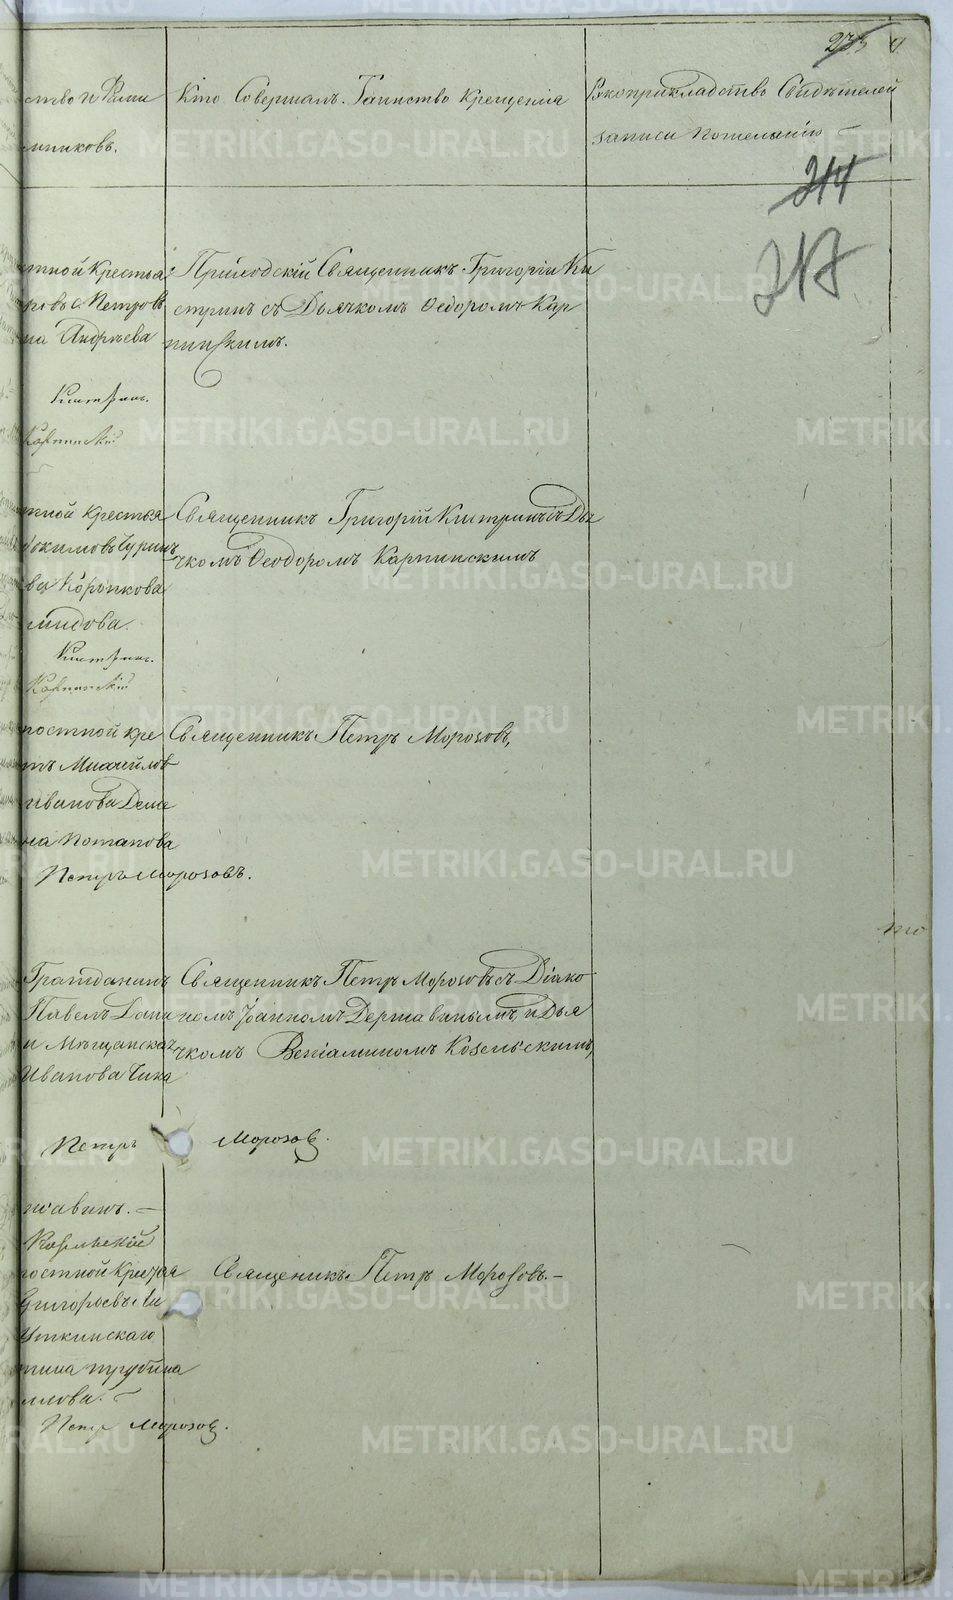 233
ство и Фами Кто Совершалъ Таинство Крещенія Рукоприкладство Свидѣтелей
записи по желанію
214
217
Крестья Приходскій Священникъ Григорій Ки
Петровъ стринъ съ Дьячкомъ Ѳедоромъ Кар
на Андреева пинскимъ.
Кистринъ.
Карпинскій
Крестья Священникъ Григорій Кистринъ съ Дья
чкомъ Ѳеодоромъ Карпинскимъ
ва Коропкова
мидова.
Кистринъ.
Карпинскій
постной кре Священникъ Петръ Морозовъ,
тъ Михайлов
Иванова Деме
на Потапова
Петръ Морозовъ.
Гражданинъ Священникъ Петръ Морозовъ съ Діако
Павелъ Дани номъ Іоанномъ Державинымъ, и Дья
и Мѣщанская чкомъ Веніаминомъ Козельскимъ,
Иванова Чика
Петръ Морозов.
жавинъ. —
Козельскій
постной Кресья Священикъ Петръ Морозовъ. —
Григорьевъ Ли
Уткинскаго
Трубина
илова. —
Петръ Морозов.
METRIKI.GASO-URAL.RU